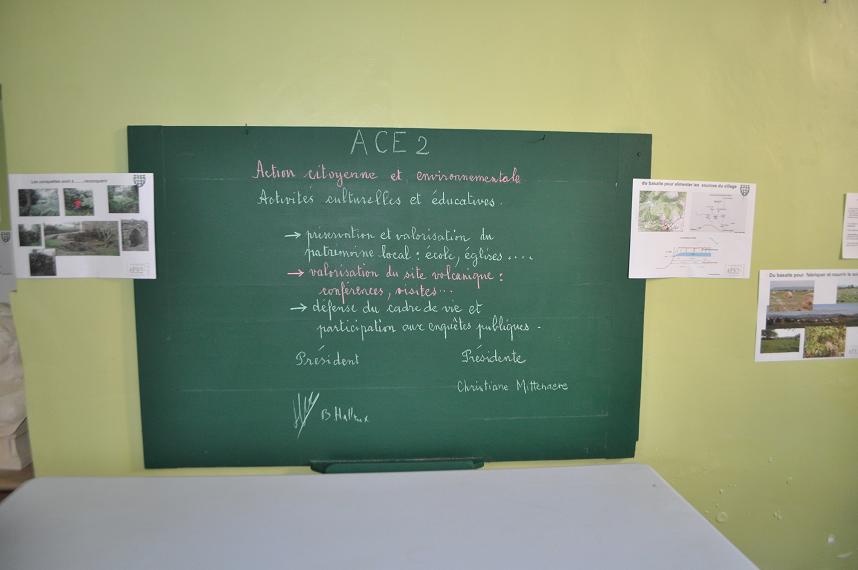 ACE 2
Action citoyenne et environnementale
Activités culturelles et éducatives.
→ préservation et valorisation du
patrimoine local : école, églises....
→ valorisation du site volcanique :
conférences, visites...
→ défense du cadre de vie et
participation aux enquêtes publiques.
Président
Présidente
Christiane Mittenaere
B
Les
sont à
reconquérir
du basalte pour alimenter les sources du village
Du basalte pour fabriquer et nourrir le